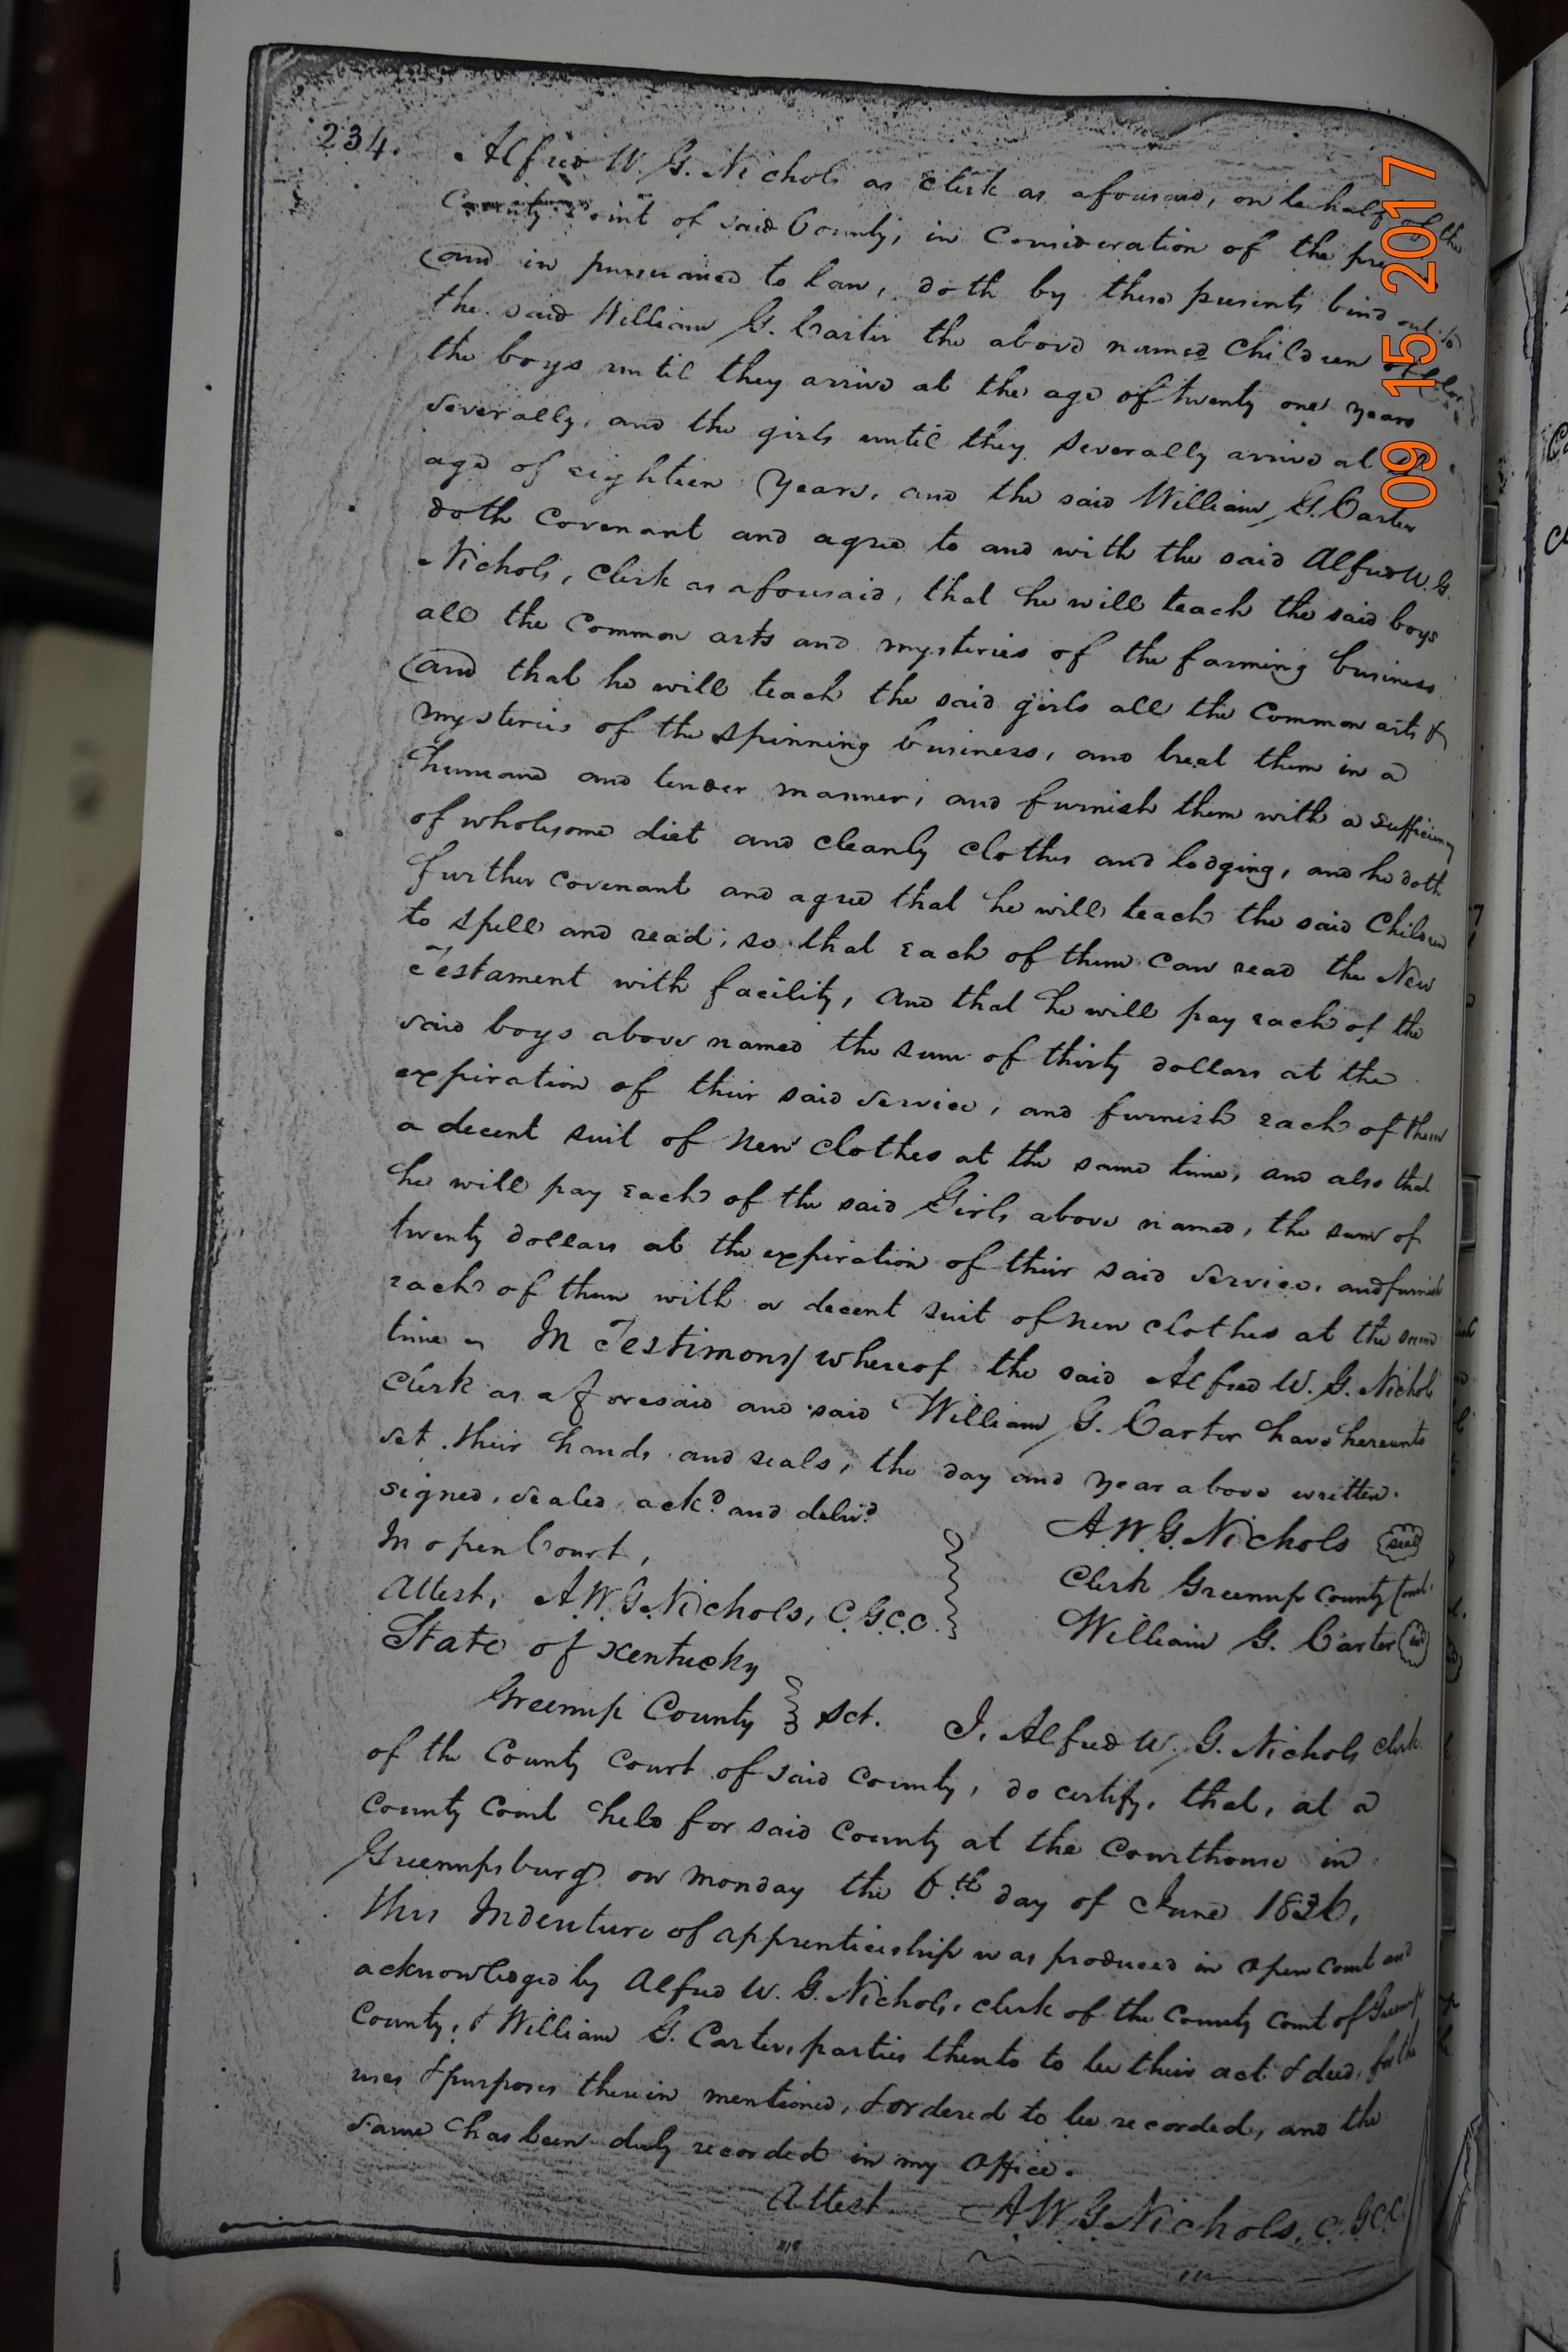 234. Alfred W. G. Nichols as clerk as aforesaid, on behalf of the
County Court of said County, in consideration of the
and in pursuance to law, doth by these presents bind out to
the said William G. Carter the above named Children of Color
the boys until they arrive at the age of twenty one years
severally, and the girls until they severally arrive at
age of eighteen Years, and the said William G. Carter
doth covenant and agree to and with the said Alfred W. G.
Nichols, clerk as aforesaid, that he will teach the said boys
all the common arts and mysteries of the farming business
and that he will teach the said girls all the common arts &
mysteries of the spinning business, and treat them in a
humane and tender manner, and furnish them with a sufficiency
of wholesome diet and cleanly clothes and lodging, and he doth
further covenant and agree that he will teach the said Children
to spell and read, so that each of them can read the New
Testament with facility, and that he will pay each of the
said boys above named the sum of thirty dollars at the
expiration of their said service, and furnish each of them
a decent suit of new clothes at the same time, and also that
he will pay each of the said Girls above named, the sum of
twenty dollars at the expiration of their said service, and furnish
each of them with a decent suit of new clothes at the same
time In Testimony whereof the said Alfred W. G. Nichols
clerk as aforesaid and said William G. Carter have hereunto
set their hands and seals, the day and year above written.
signed, sealed, ackd and delivd
In open Court,
Attest, A.W.G. Nichols, C.G.C.C.
A.W.G. Nichols seal
Clerk Greenup County Court
William G. Carter seal
State of Kentucky
Greenup County sct. I, Alfred W. G. Nichols clerk
of the County Court of said County, do certify, that, at a
County Court held for said County at the Courthouse in
Greenupsburg on monday the 6th day of June 1836,
this Indenture of apprenticeship was produced in open Court and
acknowledged by Alfred W. G. Nichols, clerk of the County Court of Greenup
County, & William G. Carter, parties thereto to be their act & deed, for the
uses & purposes therein mentioned, & ordered to be recorded, and the
same has been duly recorded in my office.
Attest A.W.G. Nichols, C.G.C.C.
09 15 2017